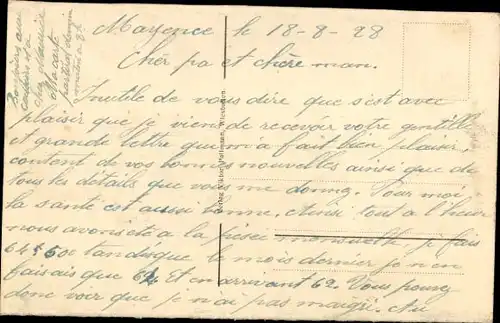 Mayence le 18-8-28
Cher pa et chère man.
Inutile de vous dire que s'est avec
plaisir que je viens de recevoir votre gentille
et grande lettre que m'a fait bien plaisir,
content de vos bonnes nouvelles ainsi que de
tous les détails que vous me donnez. Pour moi
la santé est aussi bonne. Ainsi tout a l'heure
nous avons été a la pesée mensuelle, je fais
64 500 tandisque le mois dernier je n'en
faisais que 64 Et en arrivant 62. Vous pouvez
donc voir que je n'ai pas maigri. Au
Ma carte
partira demain
matin a 8h